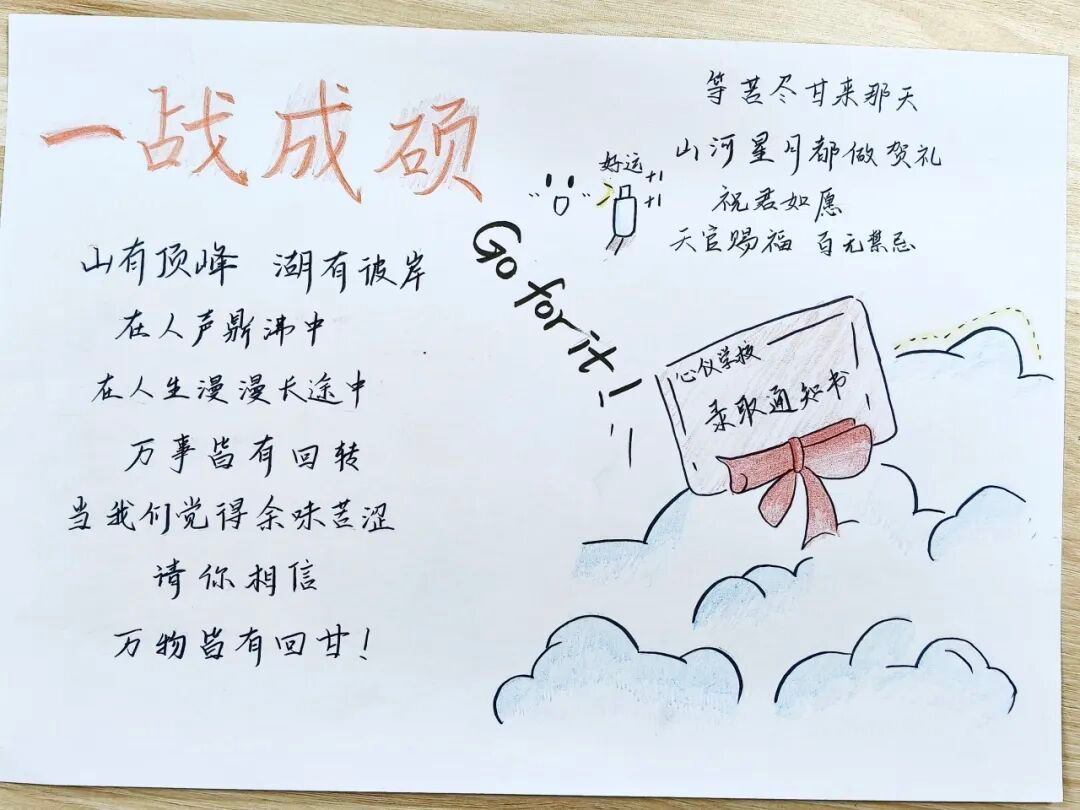 一战成硕
山有顶峰 湖有彼岸
在人声鼎沸中
在人生漫漫长途中
万事皆有回转
当我们觉得余味苦涩
请你相信
万物皆有回甘!
等苦尽甘来那天
山河星月都做贺礼
祝君如愿
天官赐福 百无禁忌
好运
+1
+1
Go for it!
心仪学校
录取通知书